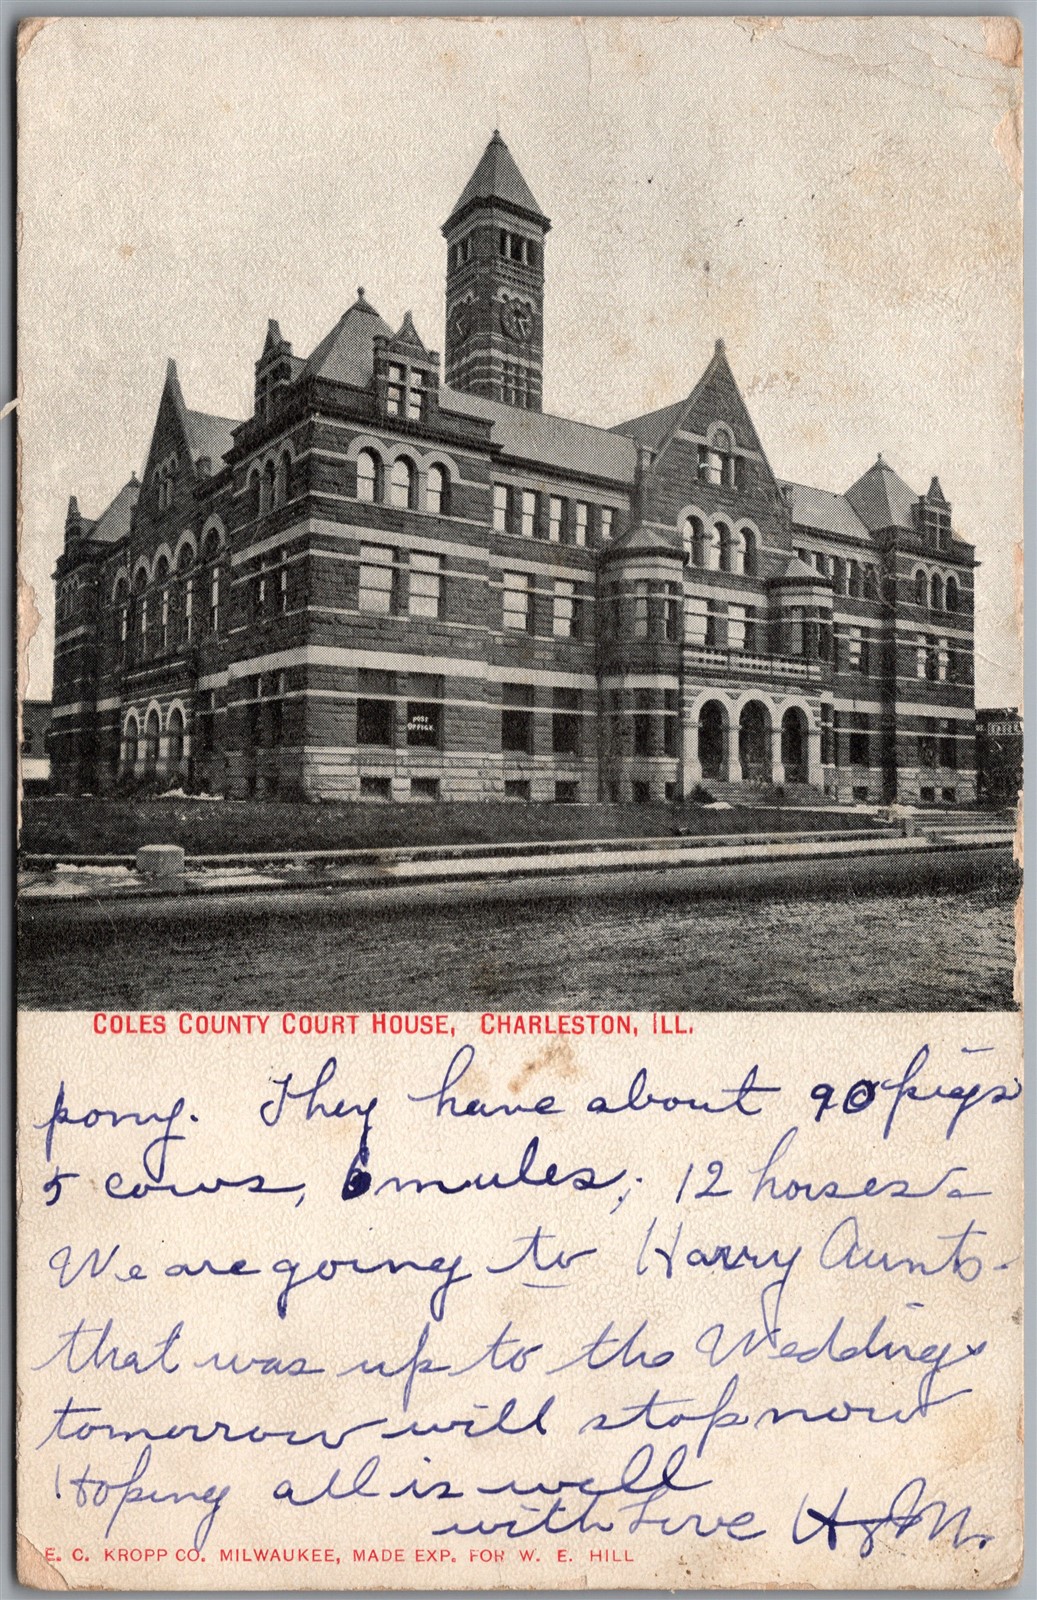 POST
OFFICE
COLES COUNTY COURT HOUSE, CHARLESTON, ILL.
pony. They have about 90 pigs
5 cows, 6 mules, 12 horses
We are going to Harry Aunts
that was up to the Wedding
tomorrow will stop now
Hoping all is well
with Love H &
E. C. KROPP CO. MILWAUKEE, MADE EXP. FOR W. E. HILL